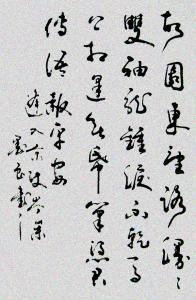 故園東望路漫〻
雙袖龍鍾淚不乾馬
上相逢無紙筆憑君
傳語報平安
逢入京使岑參